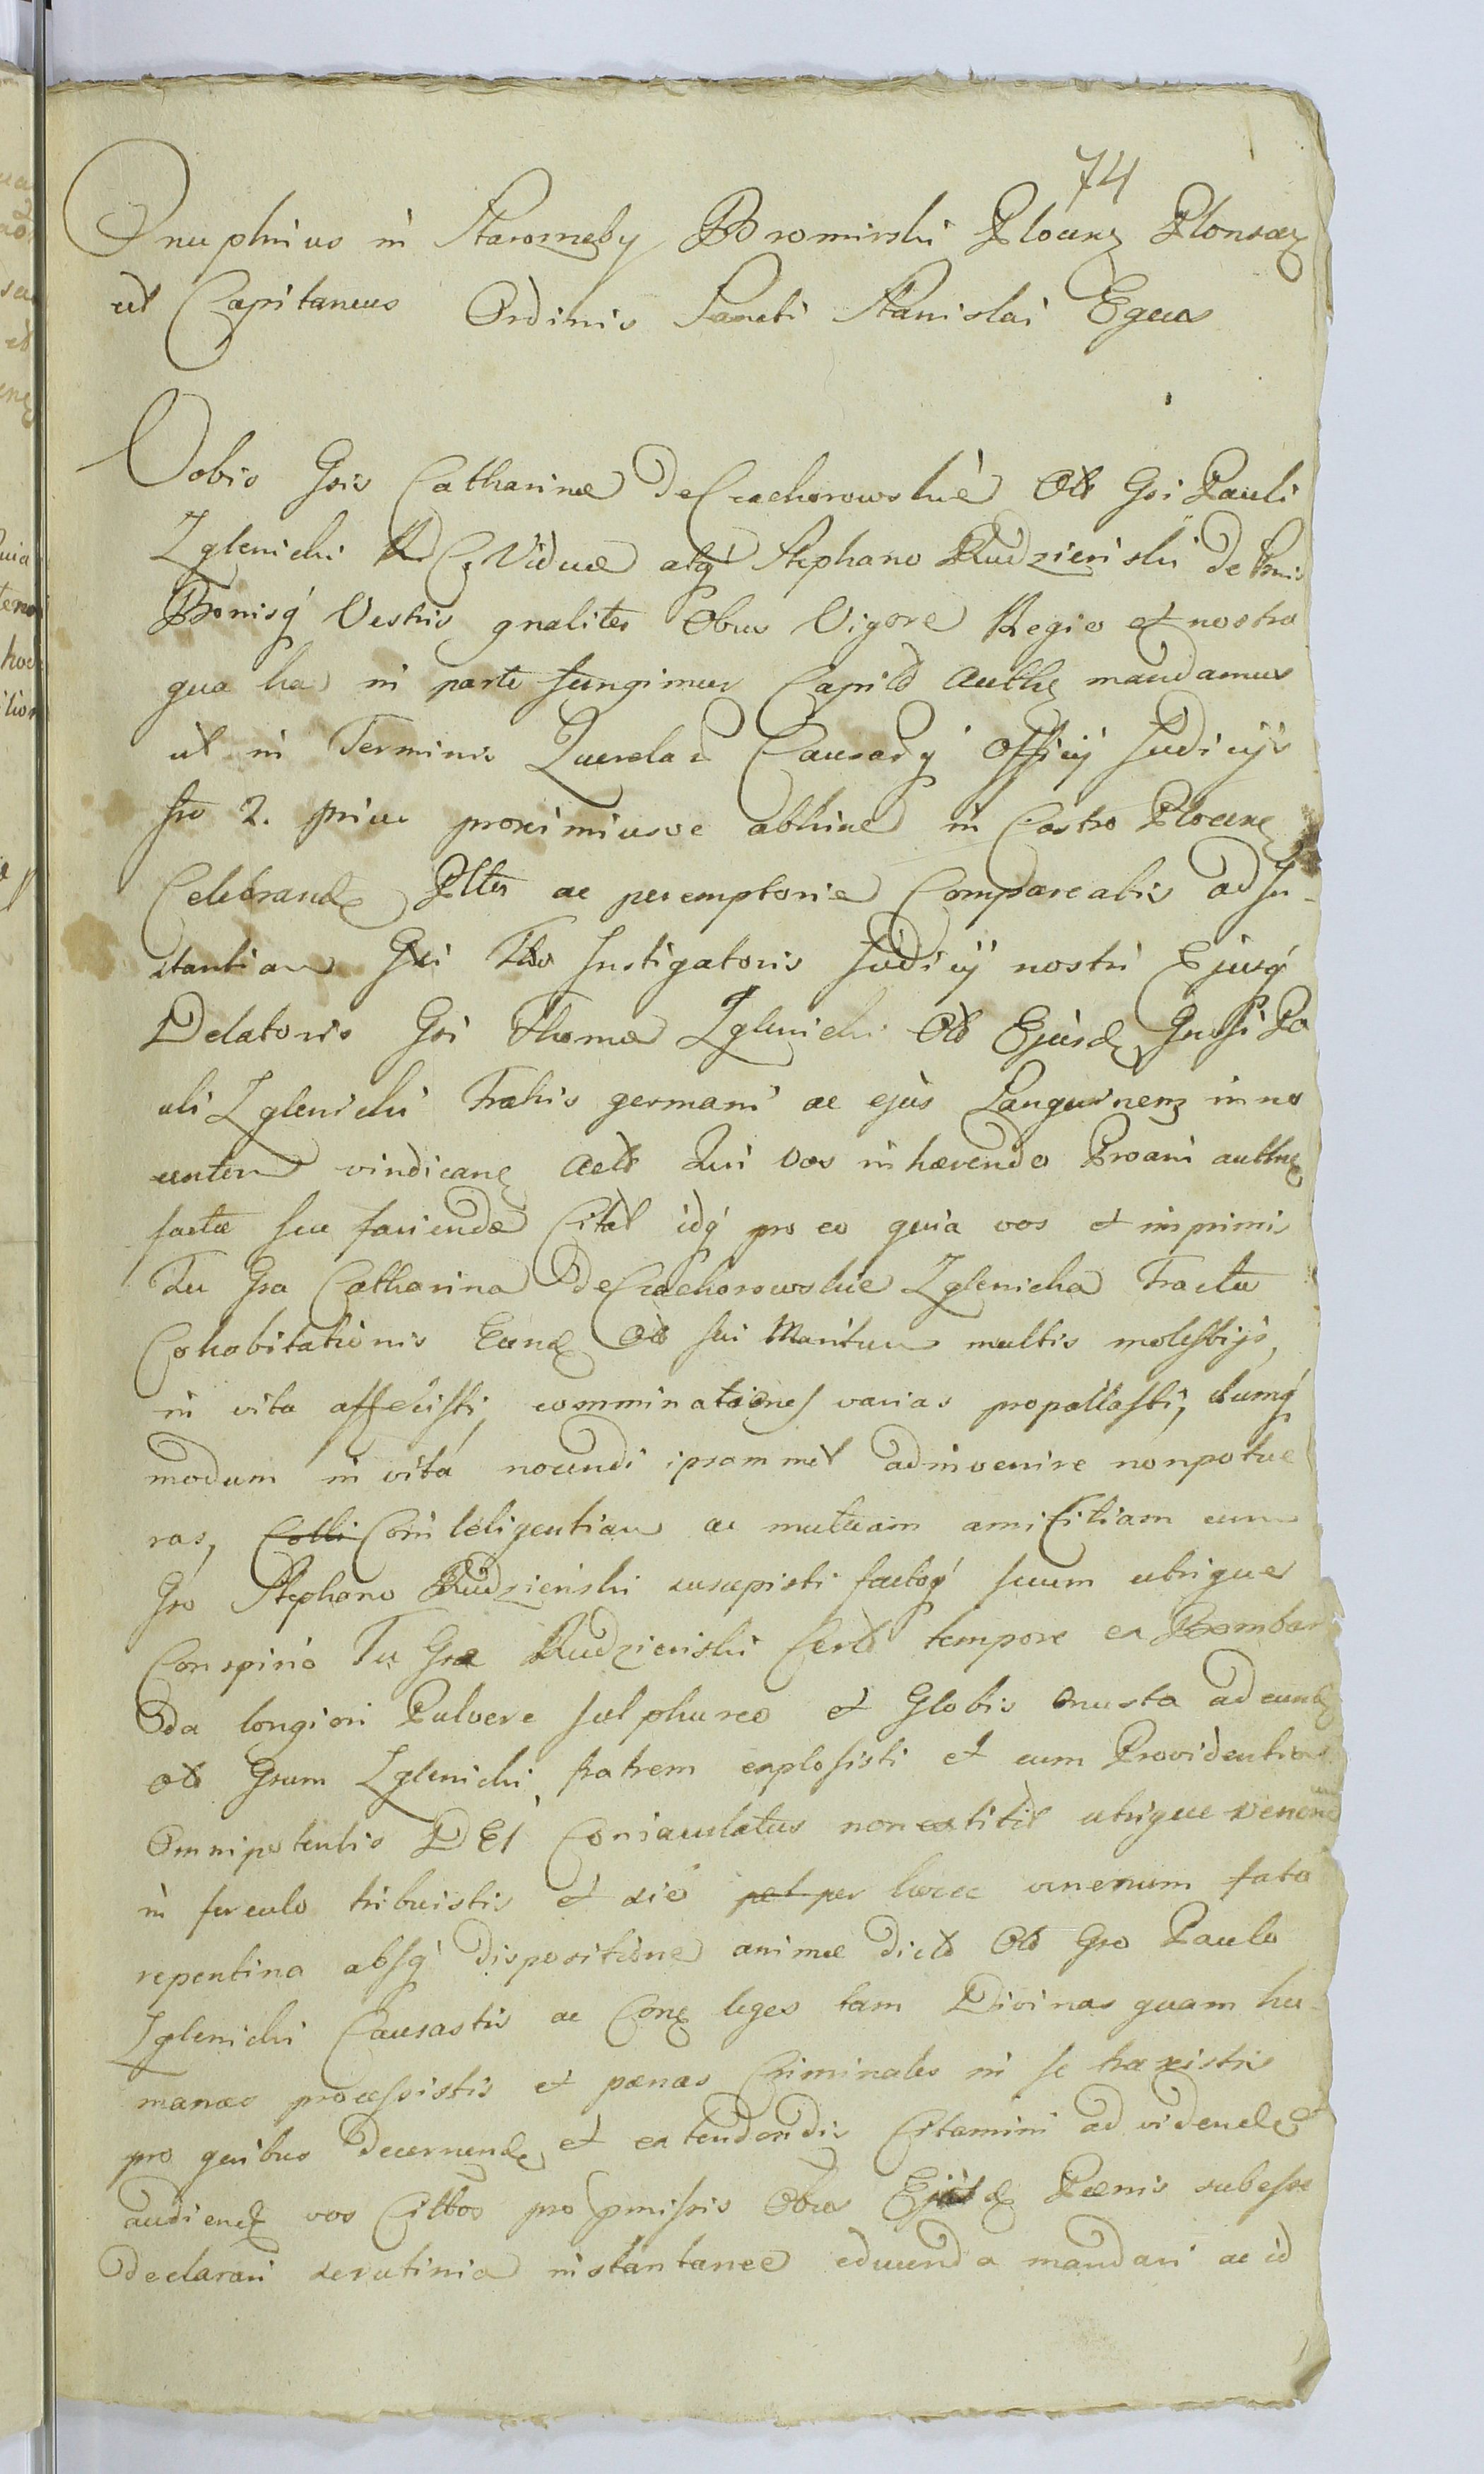 74
Onuphrius in Staromeby Bromirski Plocen Plonscen
et Capitaneus Ordinis Sancti Stanislai Eques
Vobis Gsis Catharinæ de Czachorowskie Olb Gsi Pauli
Zglenicki R C Viduæ atq Stephano Rudzieński de Prnis
Bonisq Vestris gnaliter Obus Vigore Regio et nostra
qua hac in parte fungimur Capitl Authe mandamus
ut in Terminis Querelar Causarq Officij Judicijs
fro 2. prius proximiusve abhinc in Castro Plocen
Celebrand Pltter ac peremptorie Compareatis ad In-
stantiam Gsi Instigatoris Judicij nostri Ejusq
Delatoris Gsi Thomæ Zglenicki Olb Ejusd Gnssi Pa
uli Zglenicki Fratris germani ac ejus Sanguinem inno
centem vindican Act Qui vos inhærendo Prœani authne
factæ seu faciendæ Citat idq pro eo quia vos et inprimis
Tu Gsa Catharina de Czachorowskie Zglenicka Tractu
Cohabitationis Eund Olb sui Maritum multis molestijs
in vita affecisti, comminationes varias propallasti, dumq
modum in vitá nocendi ipsammet adinvenire nonpotue
ras, Colli Cointeligentiam ac mutuam amicitiam cum
Gso Stephano Rudzieński suscepisti factoq suum utrique
Conspirio Tu Gse Rudzieński Certo tempore ex Bombar
da longiori Pulvere sulphureo et Globis onusta ad eund
olb Gsum Zglenicki fratrem explosisti et cum Providentia
Omnipotentis DEI Coniaculatus non extitit utrique venenum
in ferculo tribuistis et sic pet per hocce venenum fata
repentina absq dispositione animæ dicto Olb Gso Paulo
Zglenicki Causastis ac Con leges tam Divinas quam hu-
manas processistis et pænas Criminales in se traxistis
pro quibus decernend et extendendis Citamini ad vidend et
audiend vos Cittos pro pmissis Obus Ejusd Pænis subesse
declarari scrutinia instantanee educenda mandari ac id